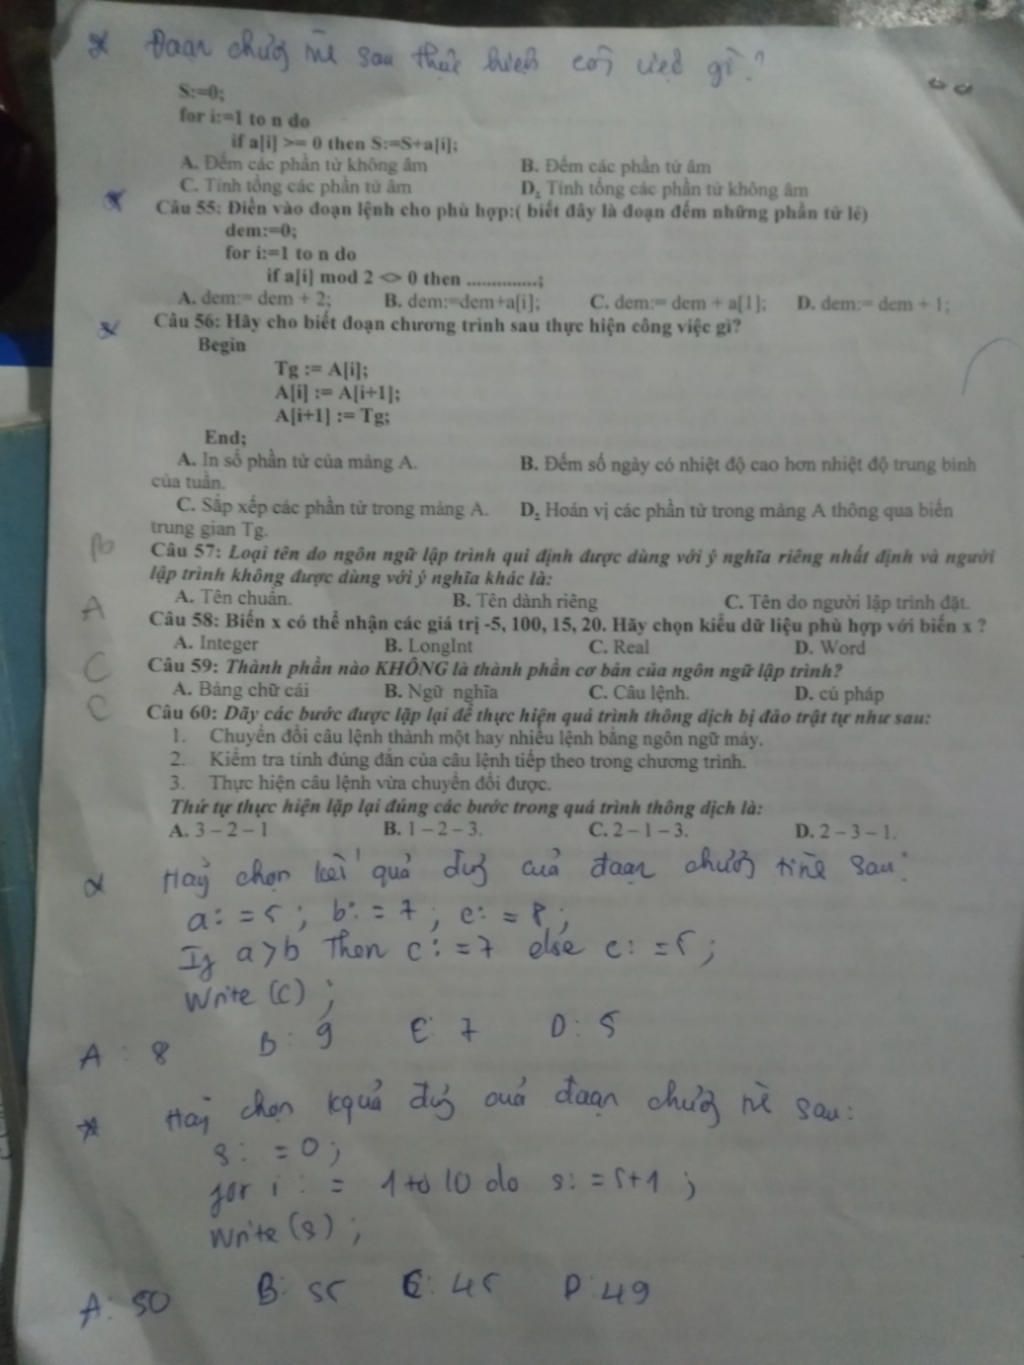 * Đoạn chương trình sau thực hiện công việc gì?
S:=0;
for i:=1 to n do
if a[i] >= 0 then S:=S+a[i];
A. Đếm các phần tử không âm B. Đếm các phần tử âm
C. Tính tổng các phần tử âm D. Tính tổng các phần tử không âm
Câu 55: Điền vào đoạn lệnh cho phù hợp:( biết đây là đoạn đếm những phần tử lẻ)
dem:=0;
for i:=1 to n do
if a[i] mod 2 <> 0 then ..............;
A. dem:= dem + 2; B. dem:=dem+a[i]; C. dem:= dem + a[1]; D. dem:= dem + 1;
Câu 56: Hãy cho biết đoạn chương trình sau thực hiện công việc gì?
Begin
Tg := A[i];
A[i] := A[i+1];
A[i+1] := Tg;
End;
A. In số phần tử của mảng A. B. Đếm số ngày có nhiệt độ cao hơn nhiệt độ trung bình
của tuần.
C. Sắp xếp các phần tử trong mảng A. D. Hoán vị các phần tử trong mảng A thông qua biến
trung gian Tg.
Câu 57: Loại tên do ngôn ngữ lập trình qui định được dùng với ý nghĩa riêng nhất định và người
lập trình không được dùng với ý nghĩa khác là:
A. Tên chuẩn. B. Tên dành riêng C. Tên do người lập trình đặt.
A Câu 58: Biến x có thể nhận các giá trị -5, 100, 15, 20. Hãy chọn kiểu dữ liệu phù hợp với biến x ?
A. Integer B. LongInt C. Real D. Word
C Câu 59: Thành phần nào KHÔNG là thành phần cơ bản của ngôn ngữ lập trình?
A. Bảng chữ cái B. Ngữ nghĩa C. Câu lệnh. D. cú pháp
C Câu 60: Dãy các bước được lặp lại để thực hiện quá trình thông dịch bị đảo trật tự như sau:
1. Chuyển đổi câu lệnh thành một hay nhiều lệnh bằng ngôn ngữ máy.
2. Kiểm tra tính đúng đắn của câu lệnh tiếp theo trong chương trình.
3. Thực hiện câu lệnh vừa chuyển đổi được.
Thứ tự thực hiện lặp lại đúng các bước trong quá trình thông dịch là:
A. 3 – 2 – 1 B. 1 – 2 – 3. C. 2 – 1 – 3. D. 2 – 3 – 1.
Hãy chọn kết quả đúg của đoạn chươg trìh sau:
a: = 5 ; b: = 7 ; c: = 8 ;
If a>b Then c: =7 else c: =5 ;
Write (c) ;
A : 8 B : 9 C: 7 D: 5
* Hãy chọn kquả đúg của đoạn chươg trìh sau:
s: = 0 ;
for i : = 1 to 10 do s: = s+1 ;
Write (s) ;
A: 50 B: 55 C: 45 D: 49